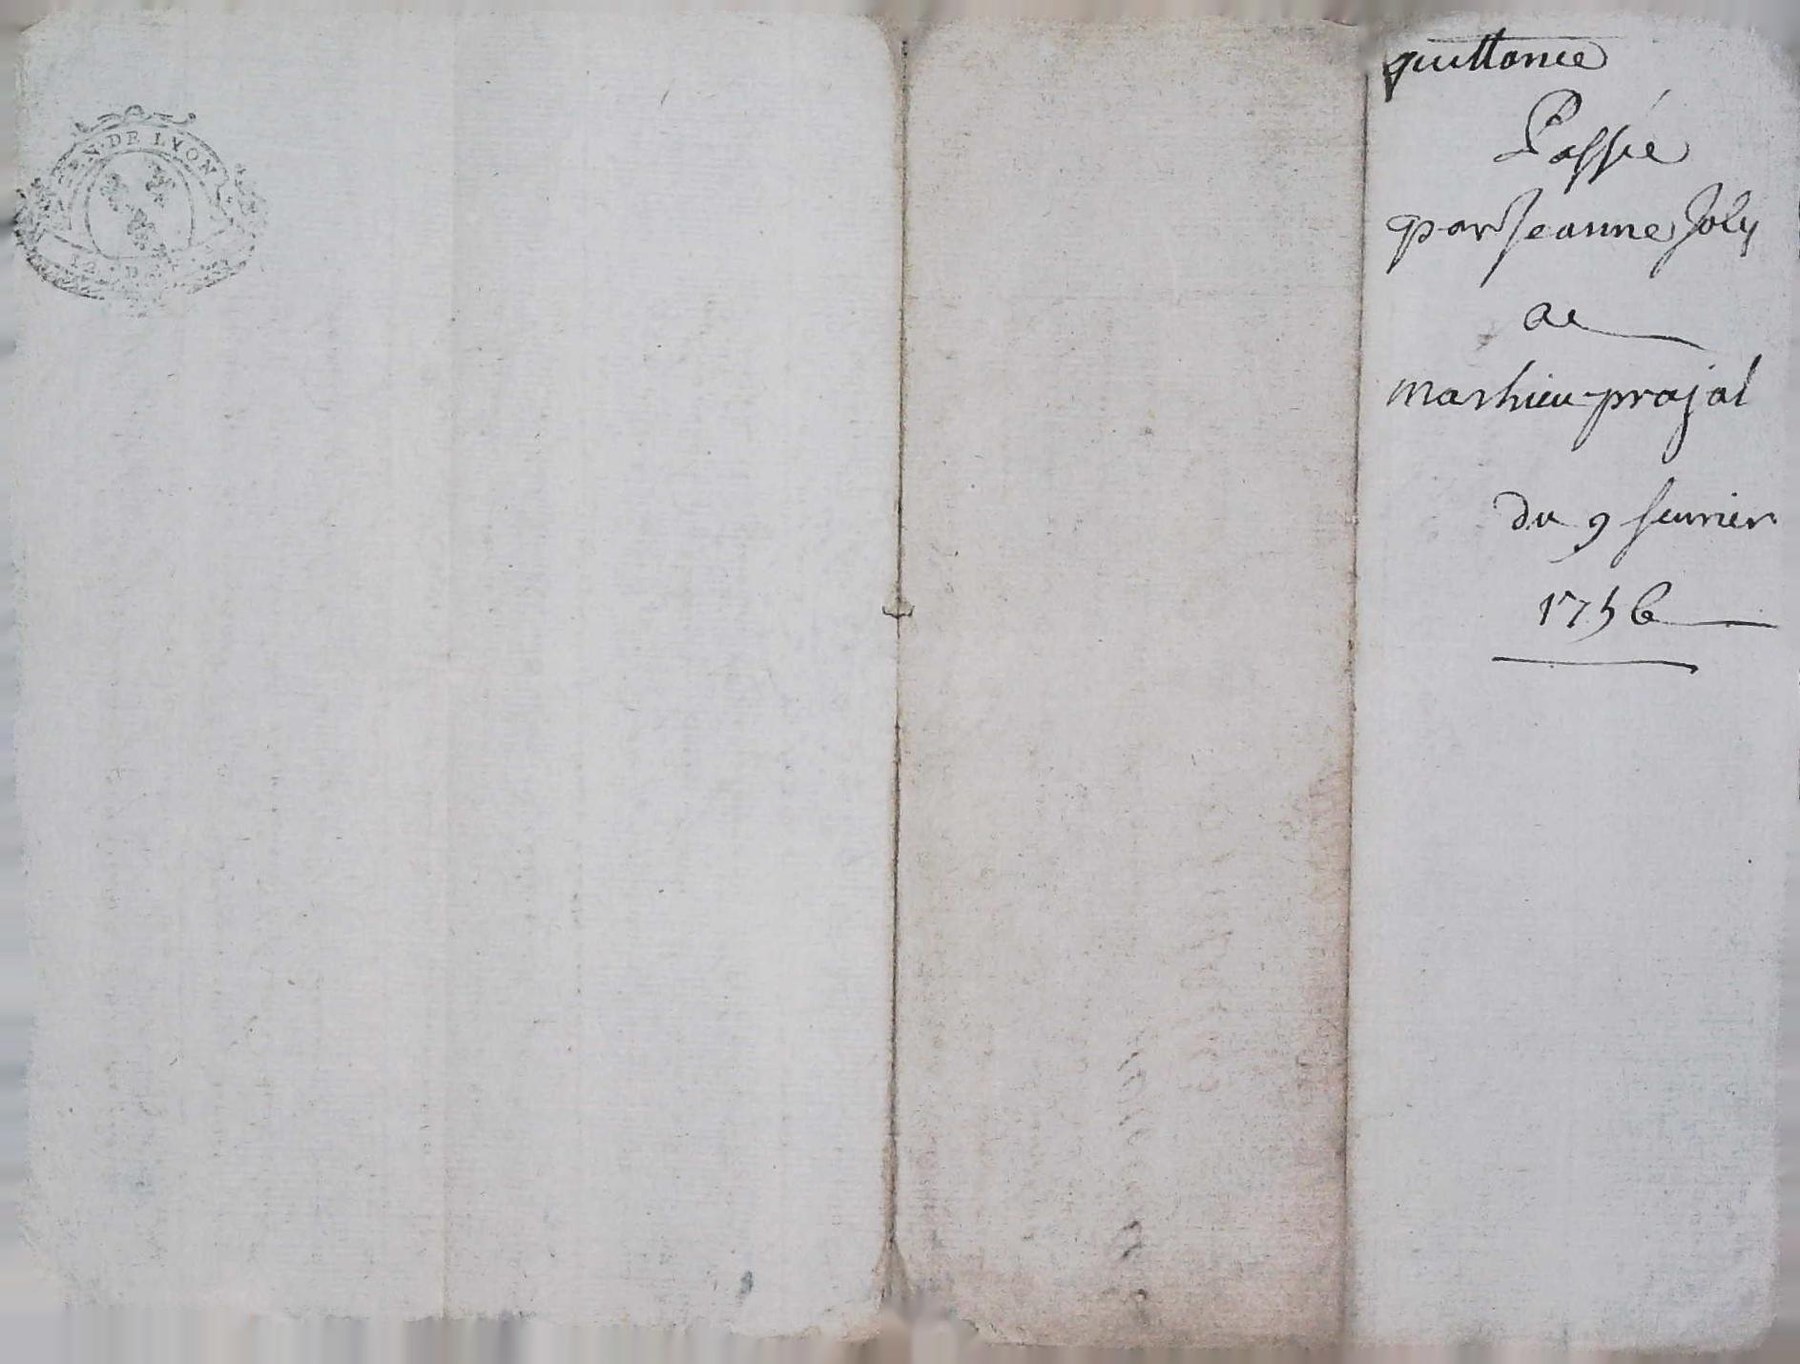 GEN·DE LYON
quittance
Passée
par Jeanne Joly
a
Mathieu prajal
du 9 feurier
1756